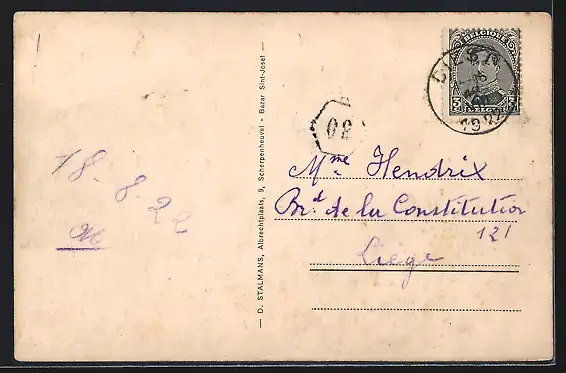 18-8-22
M
— D. STALMANS, Albrechtplaats, 9, Scherpenheuvel - Bazar Sint-Josef —
30
BELGIQUE
BELGIË
1922
Mme Hendrix
Brd de la Constitution
121
Liege